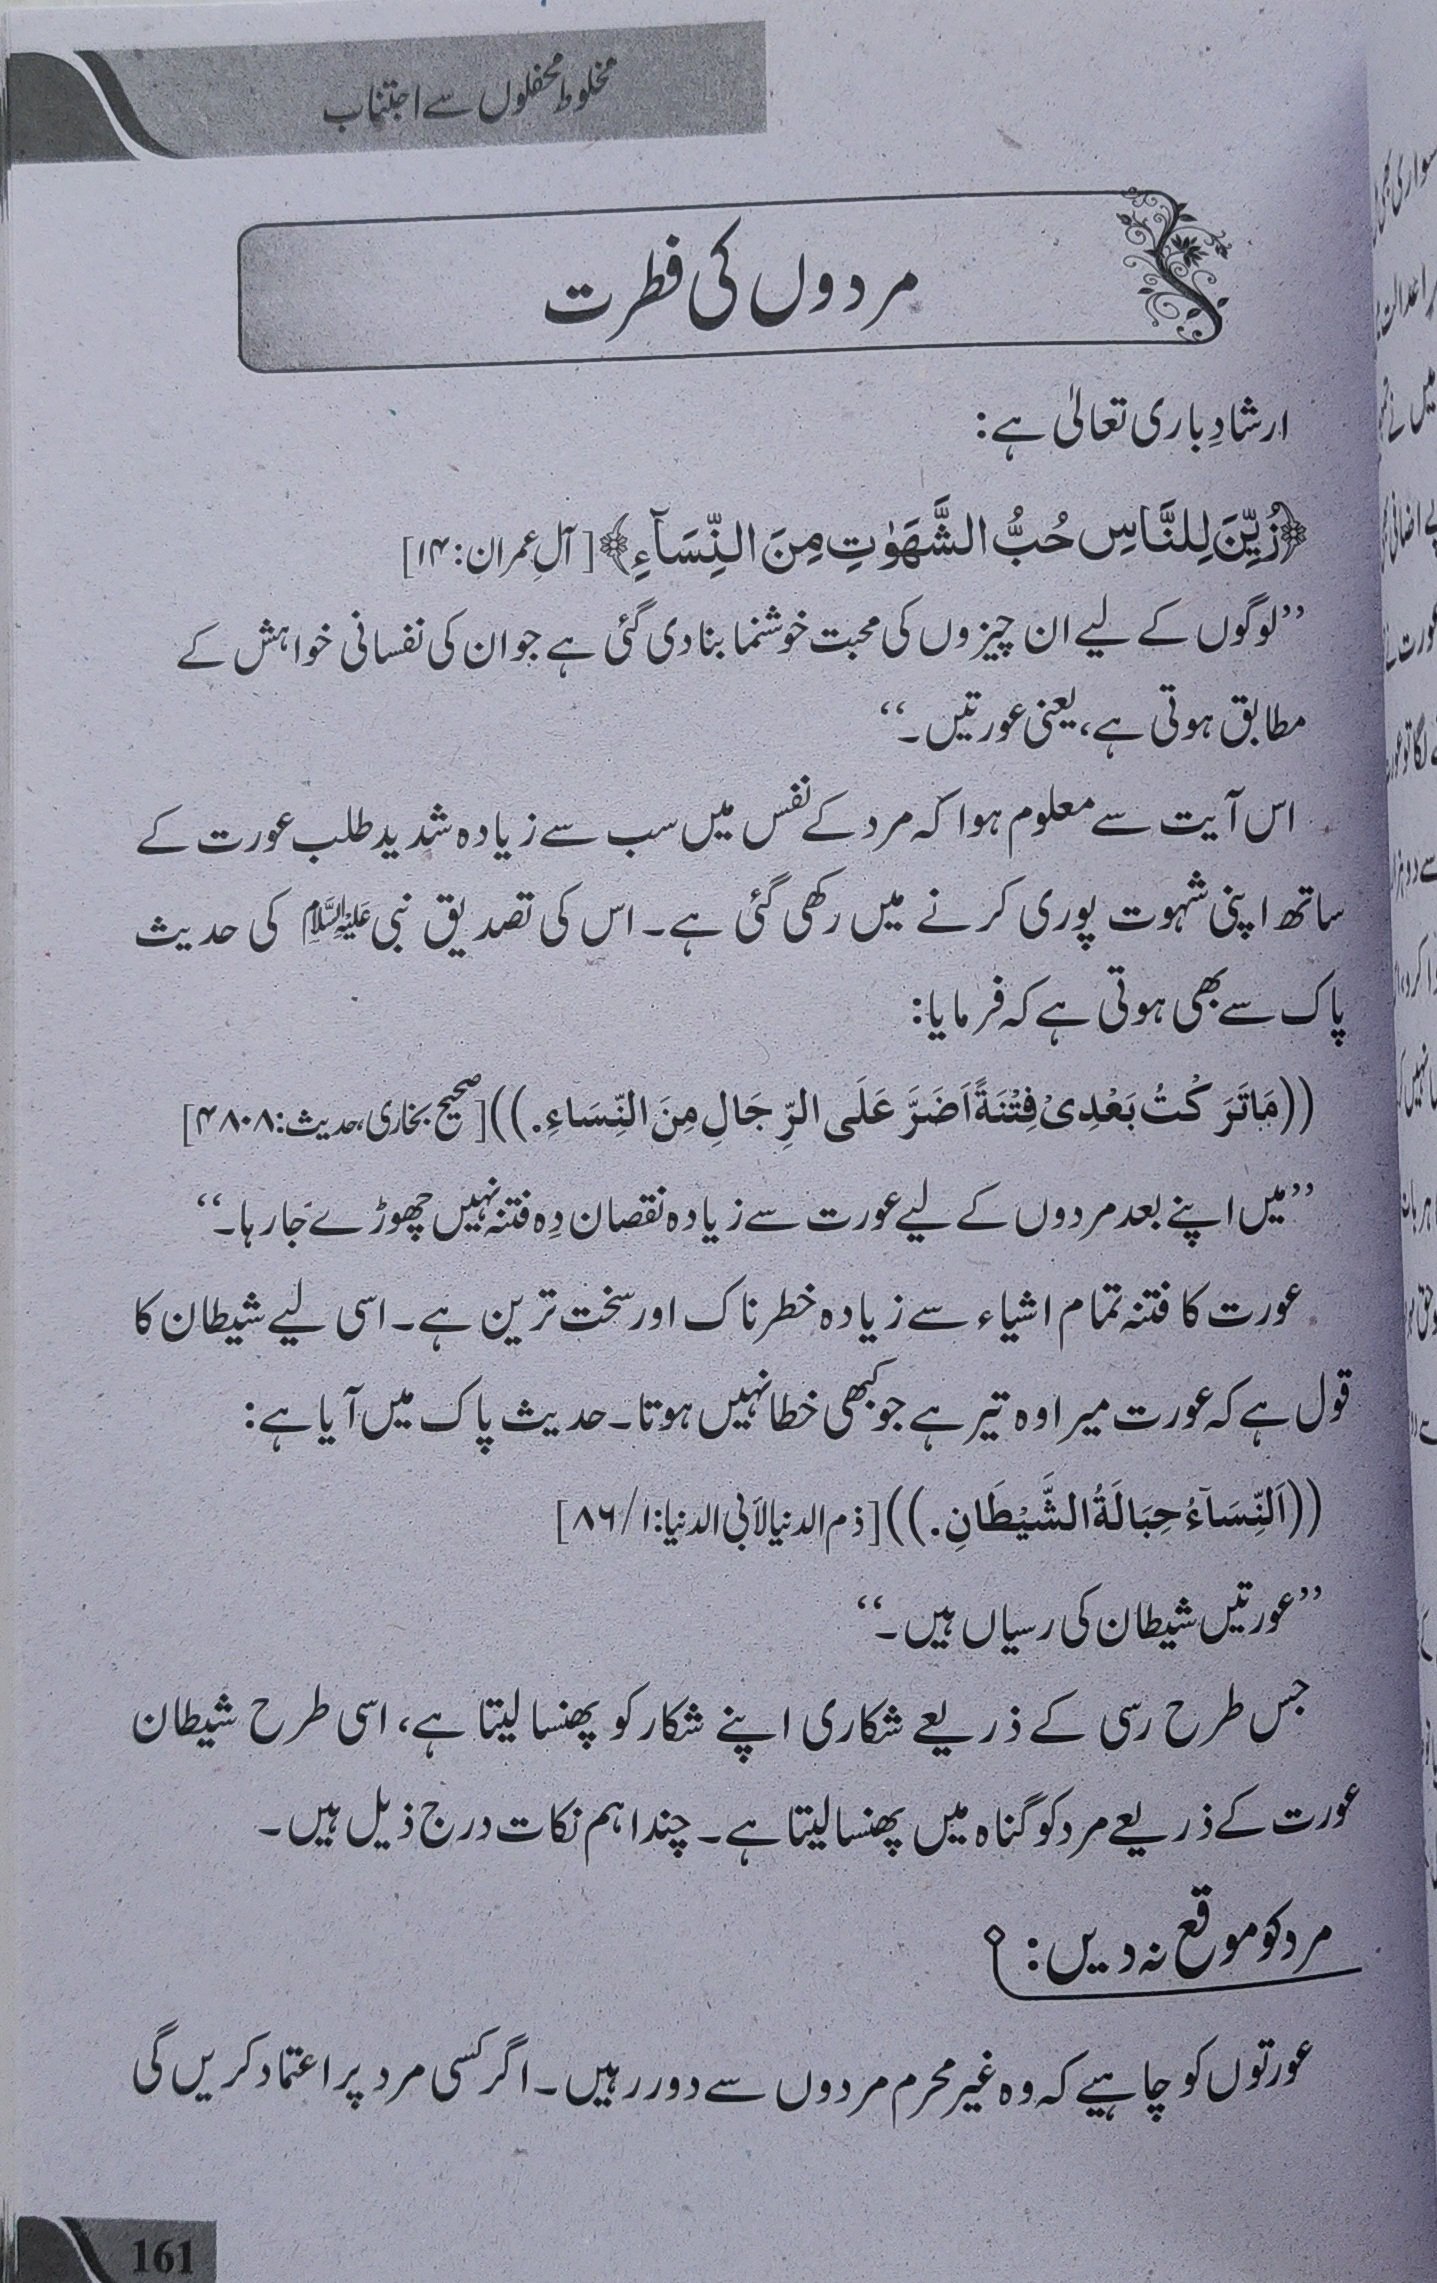 مخلوط محفلوں سے اجتناب
مردوں کی فطرت
ارشادِ باری تعالیٰ ہے:
﴿زُيِّنَ لِلنَّاسِ حُبُّ الشَّهَوٰتِ مِنَ النِّسَآءِ﴾ [آلِ عمران: ۱۴]
’’لوگوں کے لیے ان چیزوں کی محبت خوشنما بنا دی گئی ہے جو ان کی نفسانی خواہش کے
مطابق ہوتی ہے، یعنی عورتیں۔‘‘
اس آیت سے معلوم ہوا کہ مرد کے نفس میں سب سے زیادہ شدید طلب عورت کے
ساتھ اپنی شہوت پوری کرنے میں رکھی گئی ہے۔ اس کی تصدیق نبی عَلَیْہِ السَّلَام کی حدیث
پاک سے بھی ہوتی ہے کہ فرمایا:
((مَا تَرَكْتُ بَعْدِىْ فِتْنَةً اَضَرَّ عَلَى الرِّجَالِ مِنَ النِّسَاءِ.)) [صحیح بخاری، حدیث: ۴۸۰۸]
’’میں اپنے بعد مردوں کے لیے عورت سے زیادہ نقصان دِہ فتنہ نہیں چھوڑے جا رہا۔‘‘
عورت کا فتنہ تمام اشیاء سے زیادہ خطرناک اور سخت ترین ہے۔ اسی لیے شیطان کا
قول ہے کہ عورت میرا وہ تیر ہے جو کبھی خطا نہیں ہوتا۔ حدیث پاک میں آیا ہے:
((اَلنِّسَآءُ حِبَالَةُ الشَّيْطَانِ.)) [ذم الدنیا لأبی الدنیا: ۱/ ۸۶]
’’عورتیں شیطان کی رسیاں ہیں۔‘‘
جس طرح رسی کے ذریعے شکاری اپنے شکار کو پھنسا لیتا ہے، اسی طرح شیطان
عورت کے ذریعے مرد کو گناہ میں پھنسا لیتا ہے۔ چند اہم نکات درج ذیل ہیں۔
مرد کو موقع نہ دیں:
عورتوں کو چاہیے کہ وہ غیر محرم مردوں سے دور رہیں۔ اگر کسی مرد پر اعتماد کریں گی
161